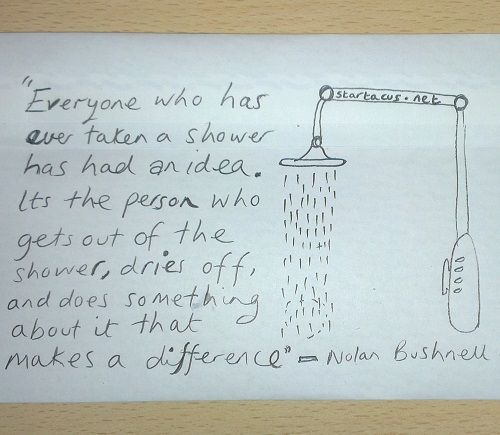 "Everyone who has
ever taken a shower
has had an idea.
Its the person who
gets out of the
shower, dries off,
and does something
about it that
makes a difference" - Nolan Bushnell
startacus.net